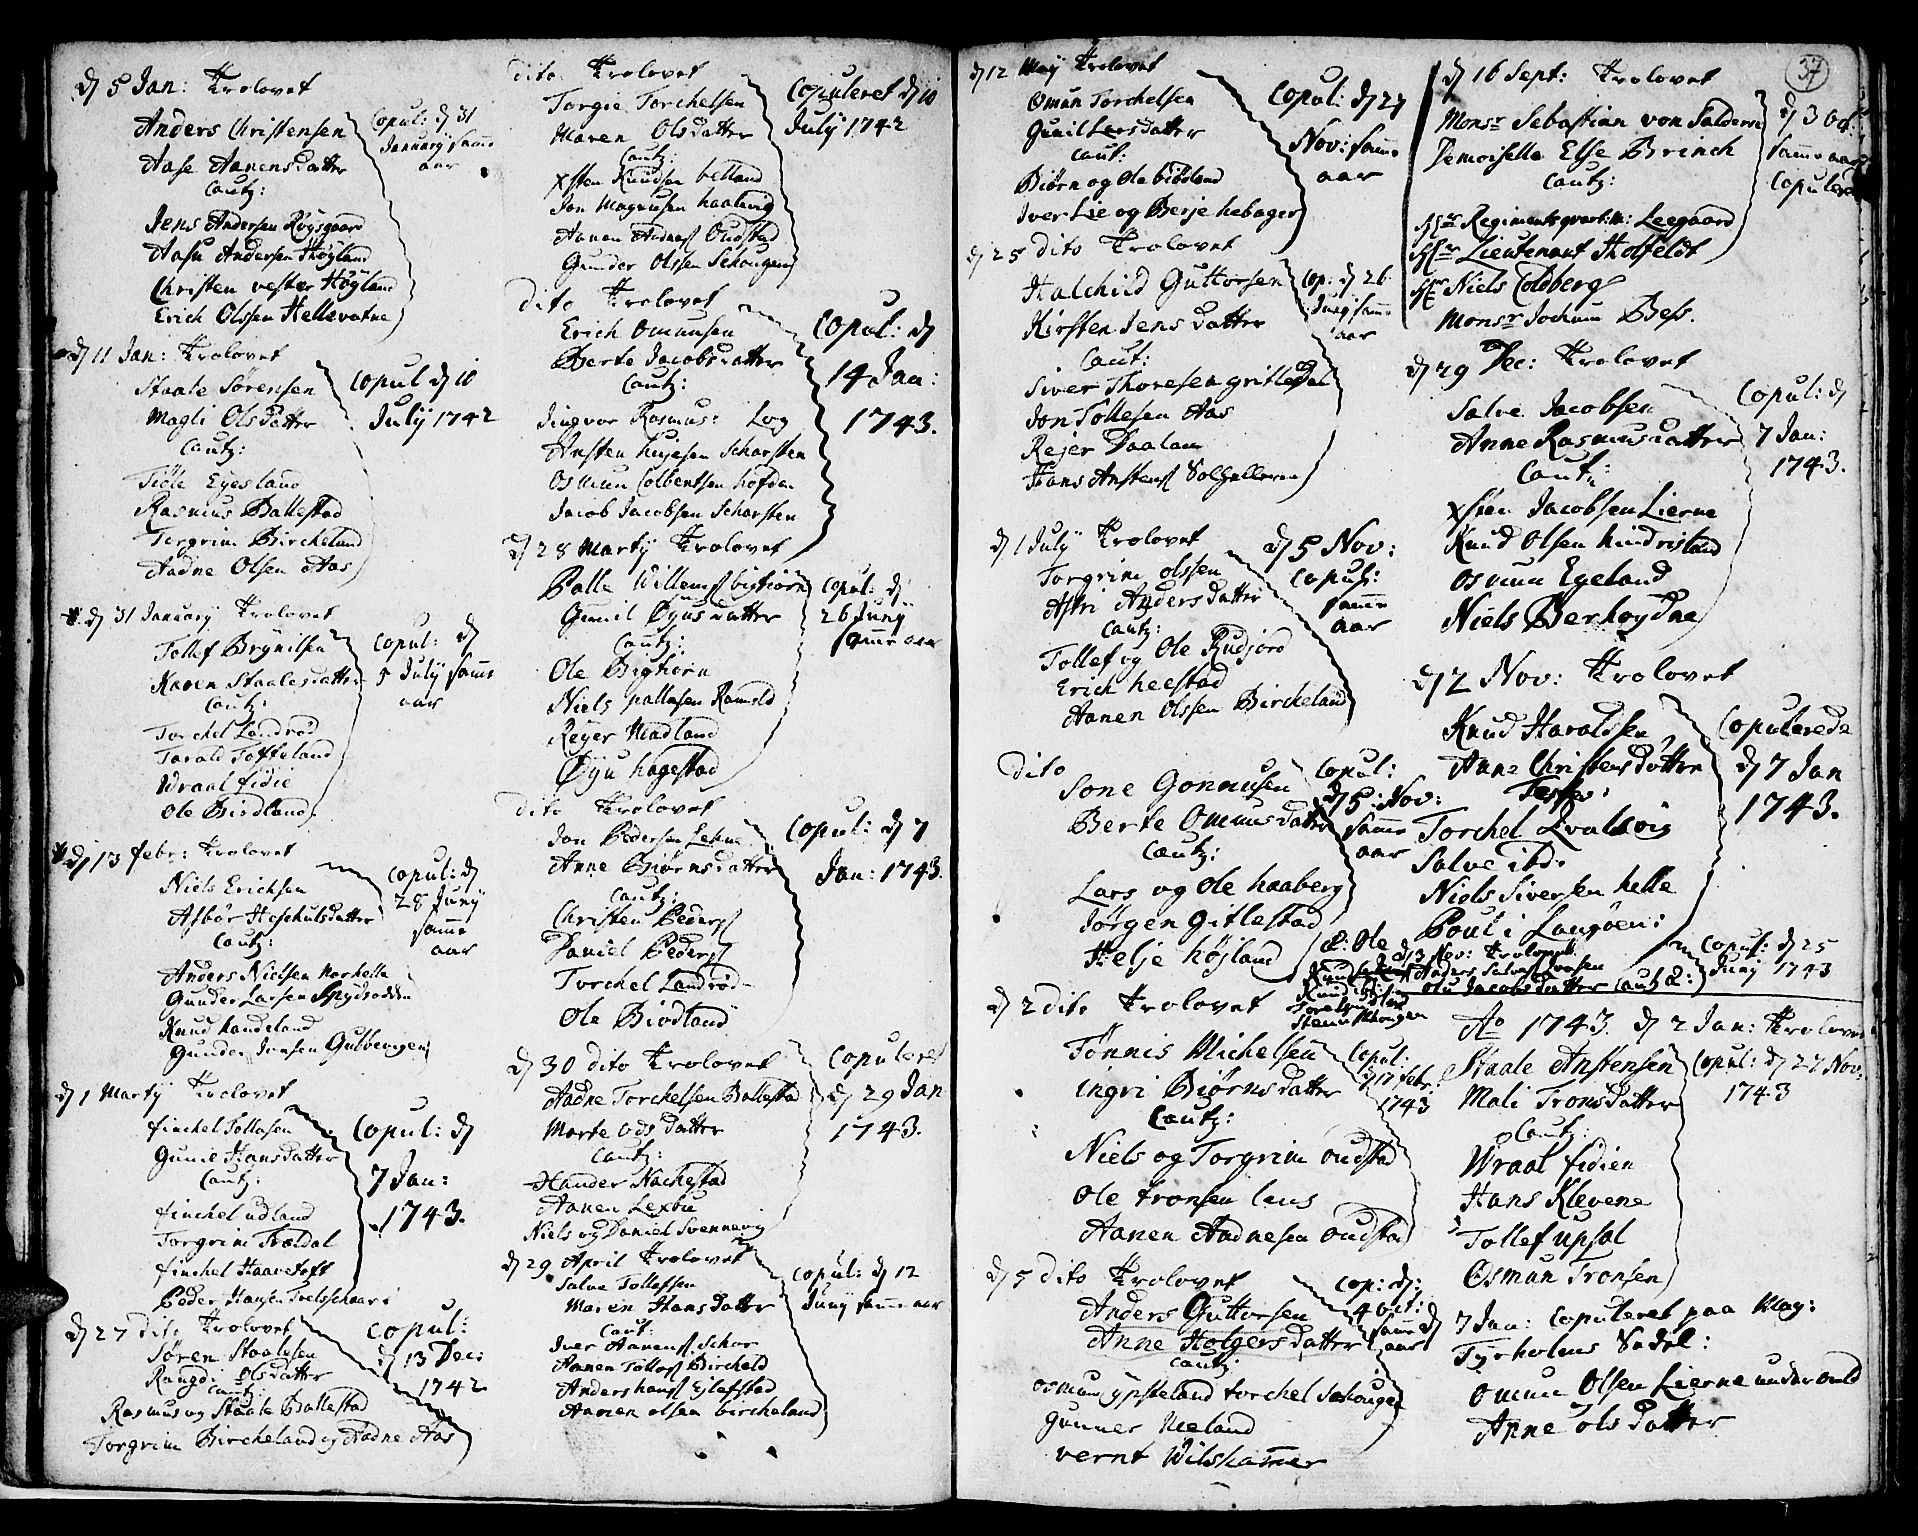 37
dj 5 Jan: Trolovet
Anders Christensen
Aase Aanensdatter
Cautz:
Jens Andersen Røysgaar
Aasu Andersen Høÿland
Christen vester Høgland
Erich Olssen Hellevatne
Copul: dj 31
Januarij samme
aar
dj 11 Jan: Trolovet
Staale Sørensen
Magli Olsdatter
Cautz:
Eyesland
Rasmus Ballestad
Torgrim Bircheland
Aadne Olsen Aas
Copul dj 10
Julij 1742
dj 31 Januarij Trolovet
Tollef Brÿnilsen
Karen Staalesdatter
Cautz:
Torchel Landrød
Tarald
Wraal fidie
Ole Birdland
Copul: dj
5 Julij samme
aar
dj 13 febr: Trolovet
Niels Erichsen
Asbør
Cautz:
Anders Nielsen
Gunder Larsen Spydsodden
Knud handeland
Gunder Jensen Gulbevigen
Copul: dj
28 Junij
samme
aar
dj 1 Martij Trolovet
finchel Tollasen
Gunild Hansdatter
Cautz:
finchel udland
Torgrim Trældal
finchel Haavetoft
Peder Hansen
Copul: dj
7 Jan:
1743.
dj 27 dito Trolovet
Søren Staalesen
Rangdi Olsdatter
Cautz:
Rasmus og Staale Ballestad
Torgrim Bircheland og Aadne Aas
Copul:
dj 13 Dec:
1742
dito Trolovet
Torgie Torchelsen
Maren Olsdatter
Cautz:
xsten Knudsen belland
Jon Magnusen haaland
Aanen Aadnes Oudstad
Gunder Olssen Schougen
Copuleret dj 10
Julij 1742
dito Trolovet
Erich Omunsen
Berte Jacobsdatter
Cautz:
Jingvor Rasmus: Log
Ansten
Osmun Colbentsen høfden
Jacob Jacobsen Scharsten
Copul: dj
14 Jan:
1743.
dj 28 Martij Trolovet
Palle Willems bigtiørn
Gunil Øÿusdatter
Cautz:
Ole Bigtiørn
Niels pallesen
Reÿer Madland
Øÿu hagestad
Copul: dj
26 Junij
samme aar
dito Trolovet
Jon Pedersen
Anne Biørnsdatter
Cautz:
Christen Peders
Daniel Peders
Torchel Landrød
Ole Biodland
Copul: dj 7
Jan: 1743.
dj 30 dito Trolovet
Aadne Torchelsen Ballestad
Marte Odsdatter
Cautz:
Hander Nachestad
Aanen Lexbu
Niels og Daniel Svennevig
Copuleret
dj 29 Jan
1743.
dj 29 April Trolovet
Salve Tollefsen
Maren Hansdatter
Caut:
Iver Aanens Schor
Aanen Tollofs Bircheld
Anders hans
Aanen olsen bircheland
Copul: dj 12
Junij samme aar
dj 12 Maij Trolovet
Omun Torchelsen
Gunil
Caut:
Biørn og Ole bibsland
Iver Lie og Berje hebager
Copul: dj 27
Nov: samme
aar
dj 25 dito Trolovet
Halchild Guttorsen
Kirsten Jensdatter
Caut:
Siver Thoresen gritledal
Jon Tollesen Aas
Rejer Daalan
Hans Anstens
Cop: dj 26
Junij samme
aar
dj 1 Julij Trolovet
Torgrim olssen
Astri Andersdatter
Cautz:
Tollef og Ole Rudjord
Erich heestad
Aanen Olssen Bircheland
dj 5 Nov:
Copul:
samme
aar
dito
Sone Gonnusen
Berte Omunsdatter
Cautz:
Lars og Ole haaberg
Jørgen gitlestad
Helje højland
Copul:
dj 5 Nov:
samme
aar
dj 2 dito Trolovet
Tønnis Michelsen
Ingri Biørnsdatter
Cautz:
Niels og Torgrim oudstad
Ole tronsen leus
Aanen Aadnesen oudstad
Copul:
dj 17 febr:
1743
dj 5 dito Trolovet
Anders Guttorsen
Anne Holgersdatter
Cautz:
osmun ÿpsteland torchel Schougen
Gunner Neland
vernt Wilskammer
Cop: dj:
4 Oct:
samme
aar
dj 16 Sept: Trolovet
Monsr Sebastian von Saldern
Demoiselle Else Brinch
Cautz:
Hr Regimentsqvartm: Leegaard
Hr Lieutenant Holfeldt
Hr Niels Coldberg
Monsr Jochum Bess.
dj 3 Oct:
samme aar
Copulered
dj 29 Dec: Trolovet
Salve Jacobsen
Anne Rasmusdatter
Caut:
xsten Jacobsen Lierne
Knud Olsen hindrisland
osmun Egeland
Niels Berhoydne
Copul: dj
7 Jan:
1743.
dj 2 Nov: Trolovet
Knud Haraldsen
Anne Christensdatter
Torchel Qvalsvig
Salve ibd.
Niels Siversen helle
Poul i Langøen:
Copulerede
dj 7 Jan
1743.
dj 3 Nov: Trolovet
Anders Salves
Jacobsdatter Cautz:
Copul: dj 25
Junij 1743
Ao 1743. dj 2 Jan: Trolovet
Staale Anstensen
Mali Tronsdatter
Cautz:
Wraal fidien
Hans Klevene
Tollef upsal
Osmun Tronsen
Copul: dj 27 Nov:
1743
dj 7 Jan: Copuleret paa Maj:
Tyrholms Sedel:
Omun Olsen Lierne under ould
Anne olsdatter